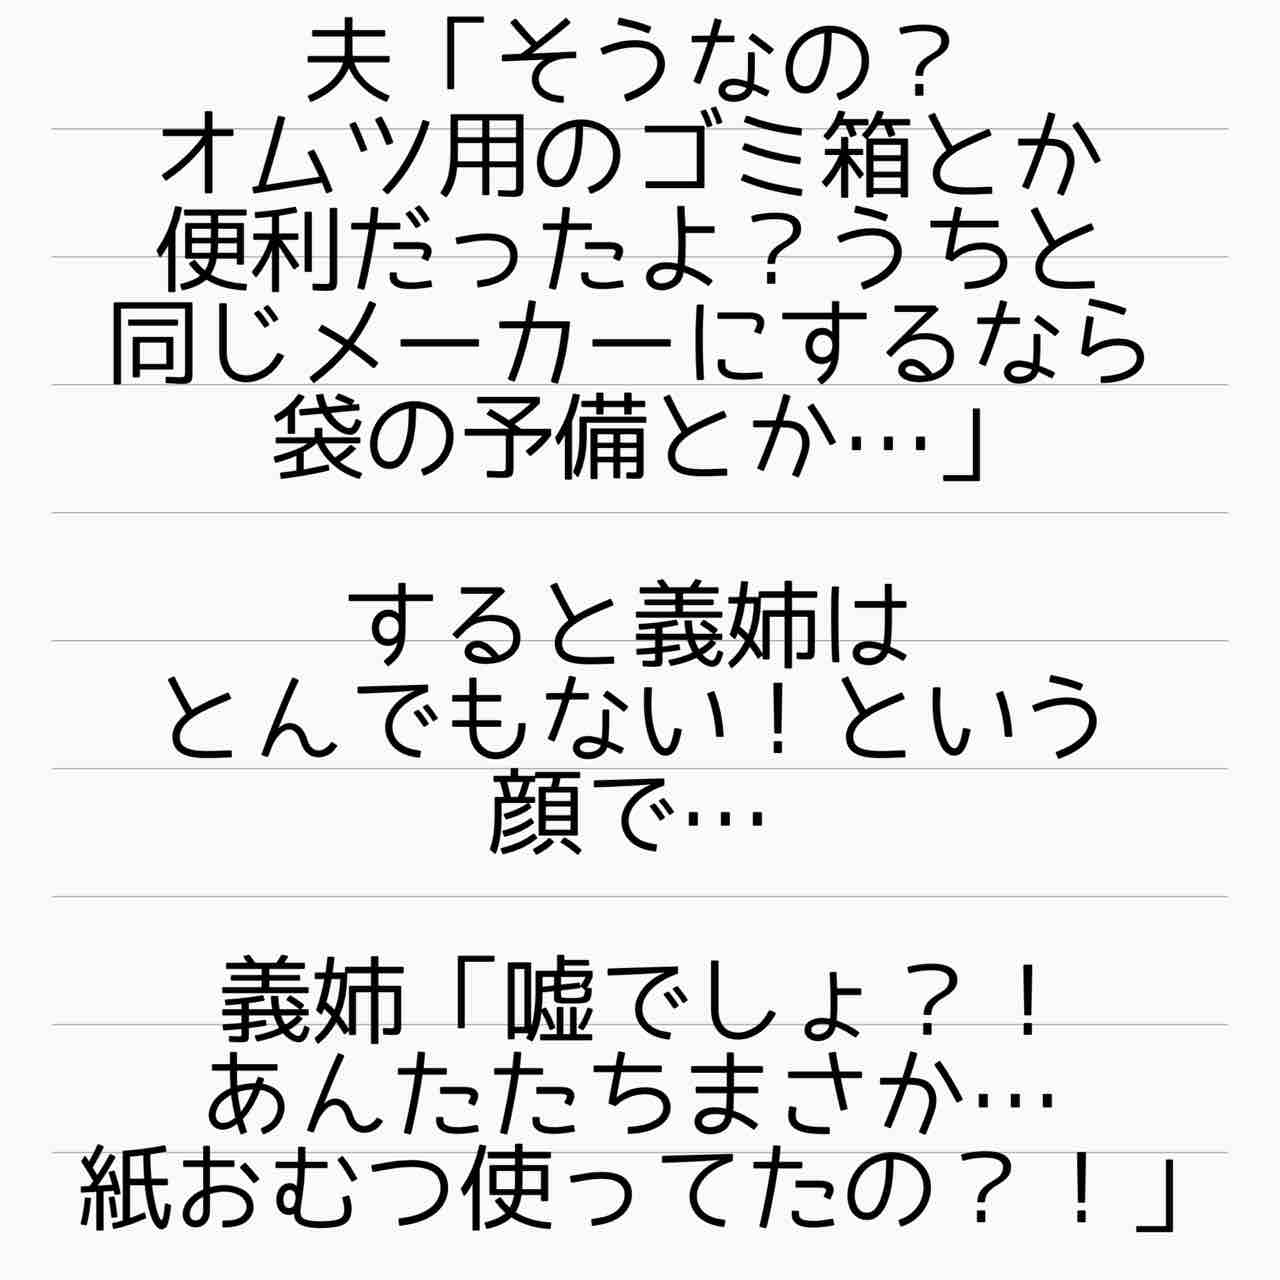 夫「そうなの？
オムツ用のゴミ箱とか
便利だったよ？うちと
同じメーカーにするなら
袋の予備とか…」
すると義姉は
とんでもない！という
顔で…
義姉「嘘でしょ？！
あんたたちまさか…
紙おむつ使ってたの？！」